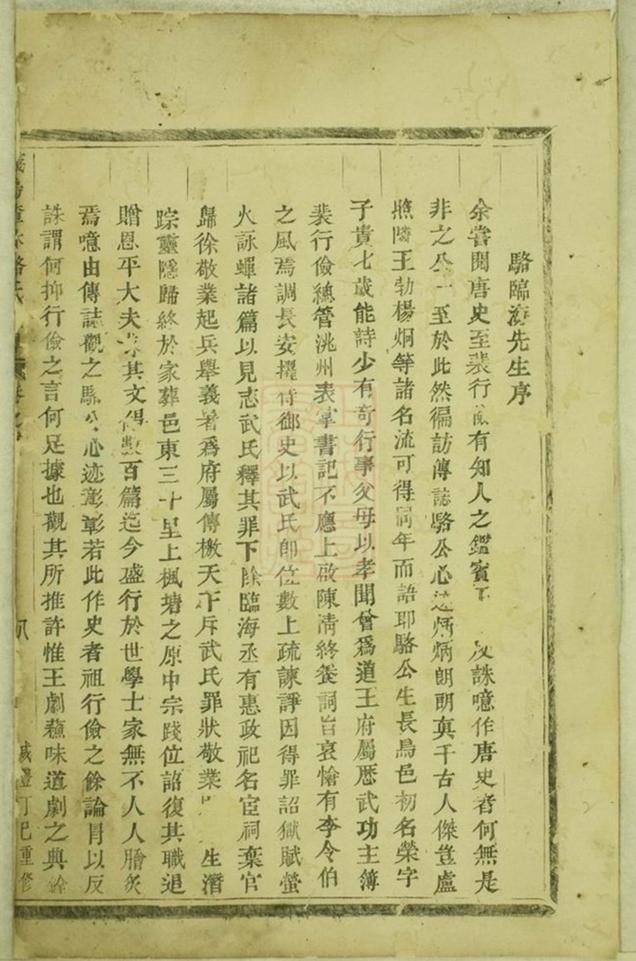 駱臨海先生序
余嘗閱唐史至裴行儉有知人之鑑賓王 反誅噫作唐史者何無是
非之公一至於此然徧訪傳誌駱公心迹炳炳朗朗眞千古人傑豈盧
照隣王勃楊炯等諸名流可得同年而語耶駱公生長烏邑初名榮字
子貴七歲能詩少有奇行事父母以孝聞曾爲道王府屬歷武功主簿
裴行儉總管洮州表掌書記不應上啟陳情終養詞旨哀愴有李令伯
之風焉調長安擢侍御史以武氏卽位數上疏諫諍因得罪詔獄賦螢
火詠蟬諸篇以見志武氏釋其罪下除臨海丞有惠政祀名宦祠棄官
歸徐敬業起兵舉義署爲府屬傳檄天下斥武氏罪狀敬業 生潛
踪靈隱歸終於家葬邑東三十里上楓塘之原中宗踐位詔復其職追
贈恩平大夫求其文得數百篇迄今盛行於世學士家無不人人膾炙
焉噫由傳誌觀之駱公心迹彰彰若此作史者祖行儉之餘論胃以反
誅謂何抑行儉之言何足據也觀其所推許惟王劇蘇味道劇之典銓
駱氏 八 咸豐丁巳重修